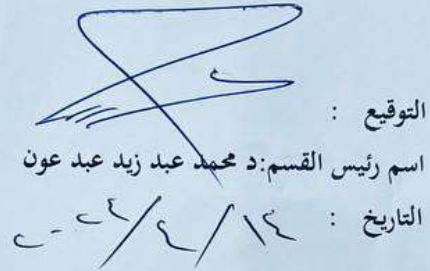 التوقيع :
اسم رئيس القسم:د محمد عبد زيد عبد عون
التاريخ : ١٤/٤/٢٠٢٤